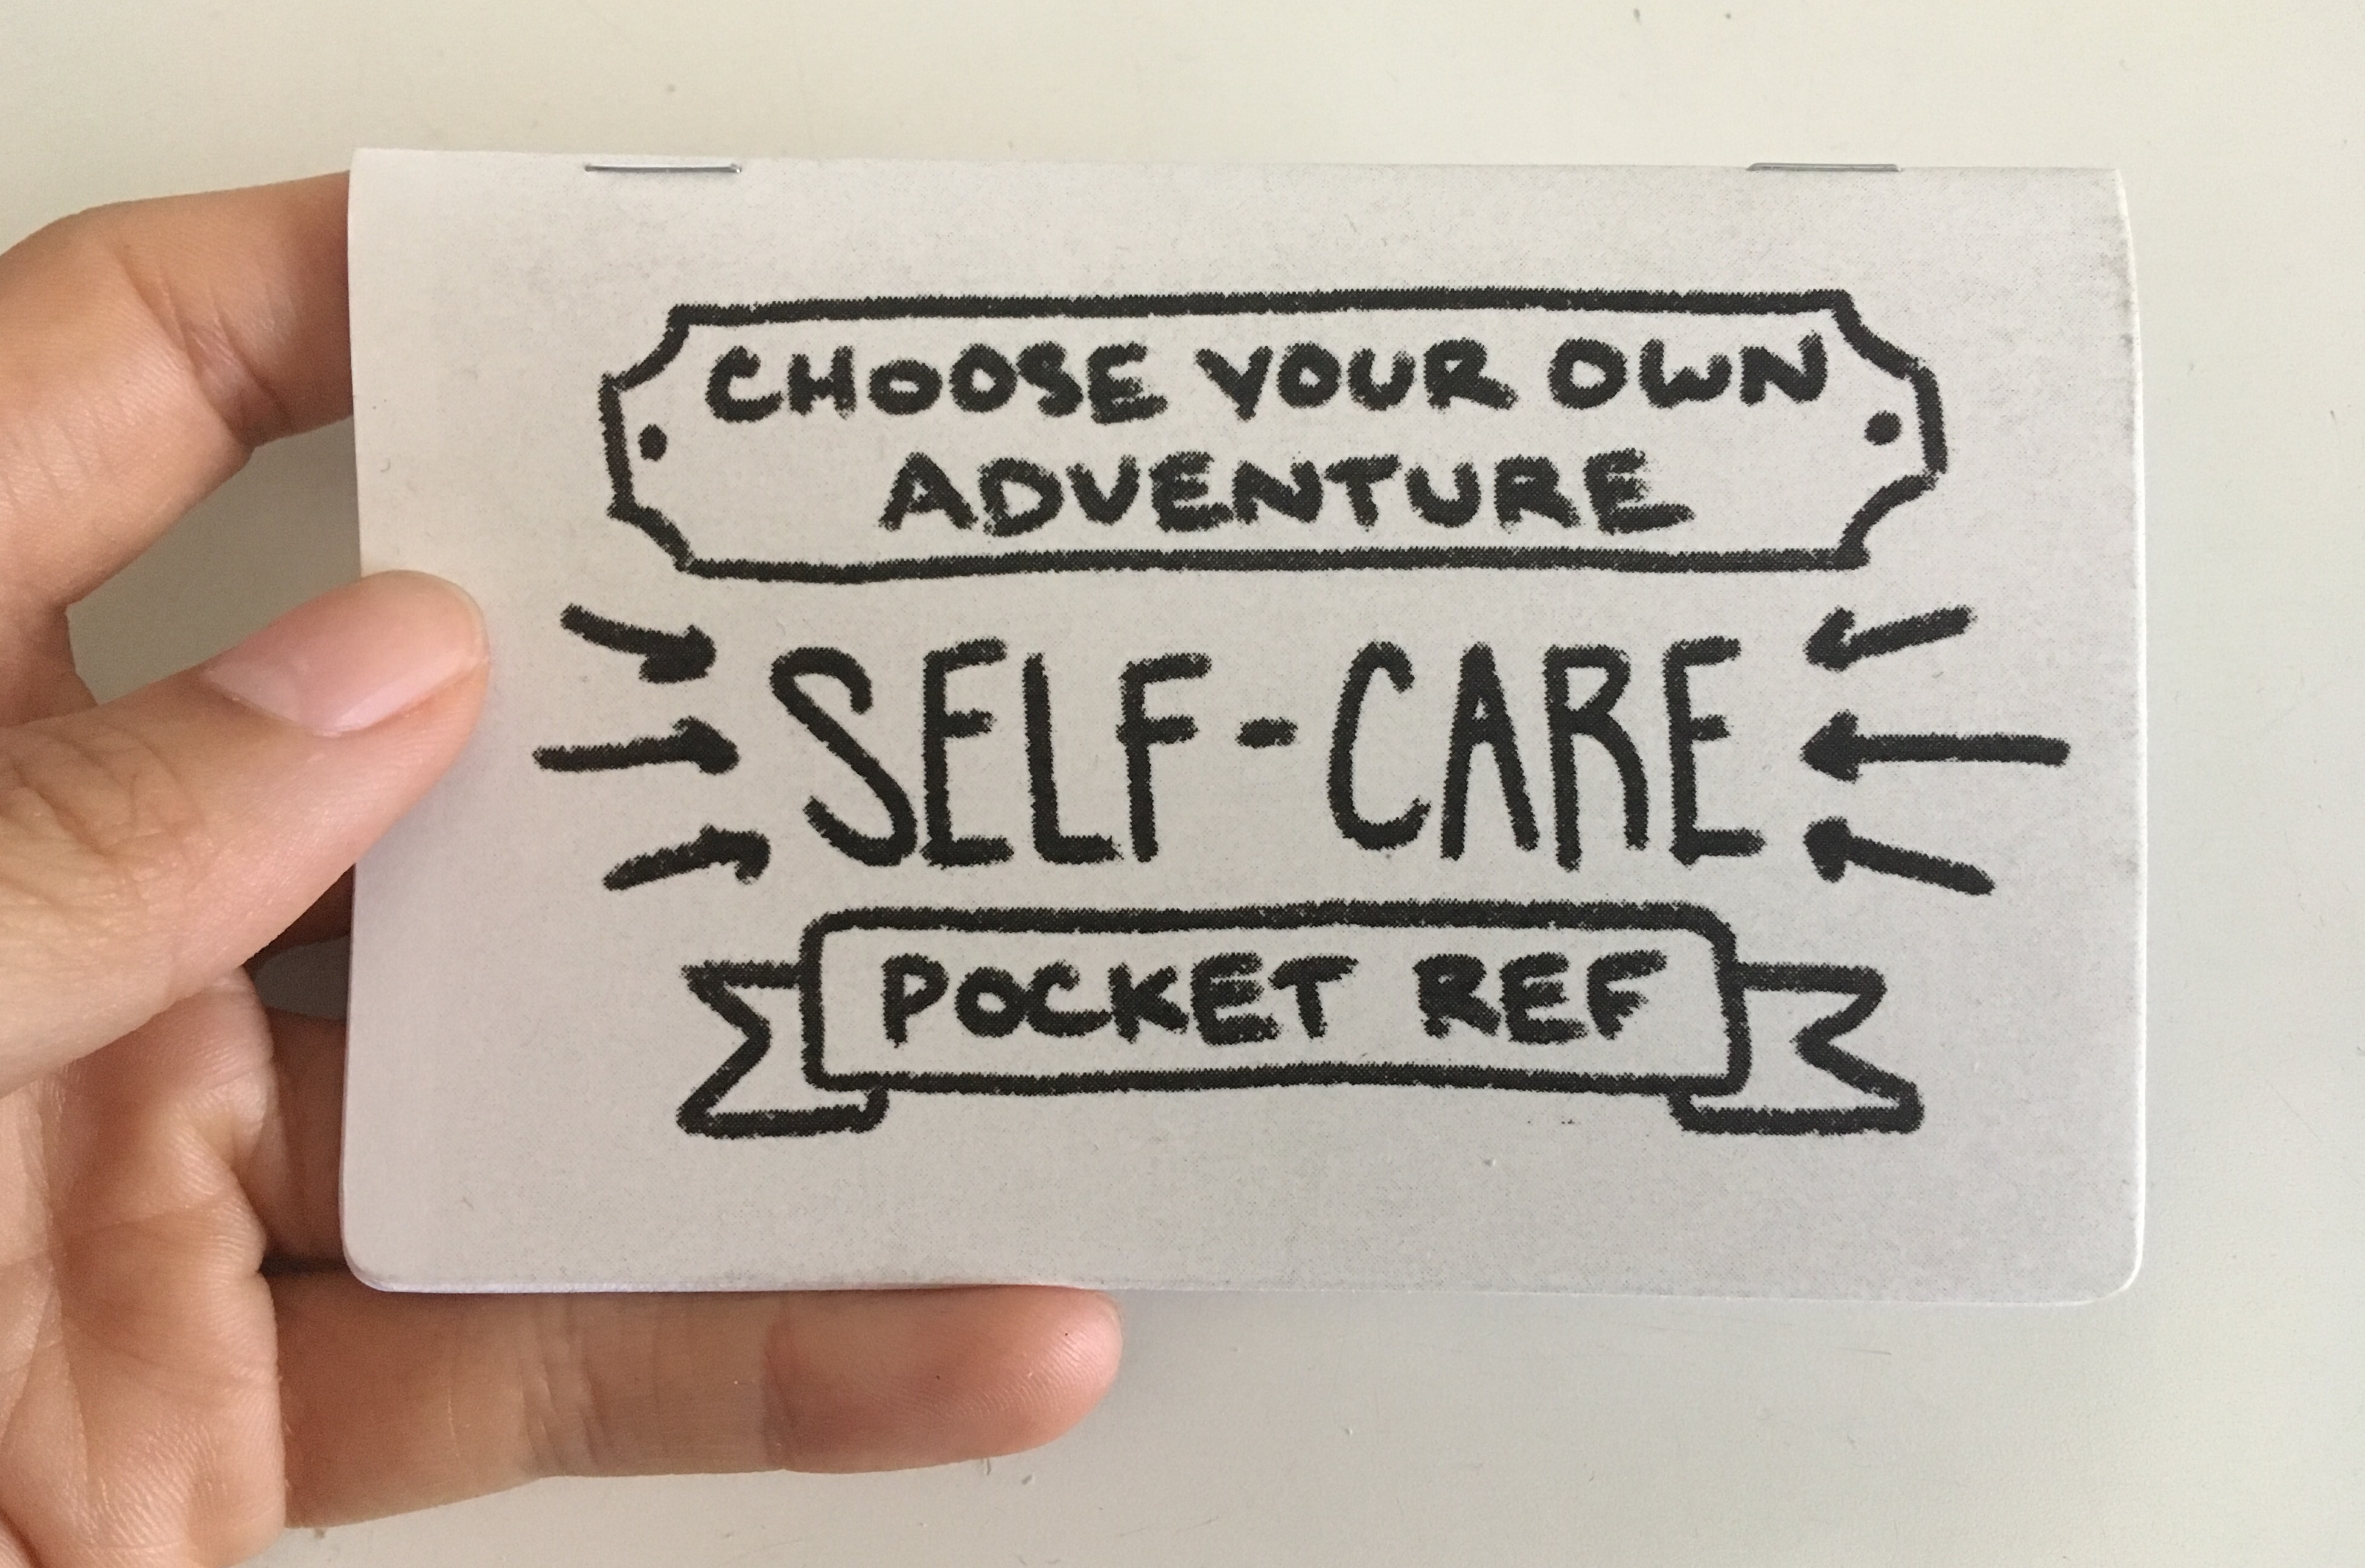 CHOOSE YOUR OWN
ADVENTURE
SELF-CARE
POCKET REF